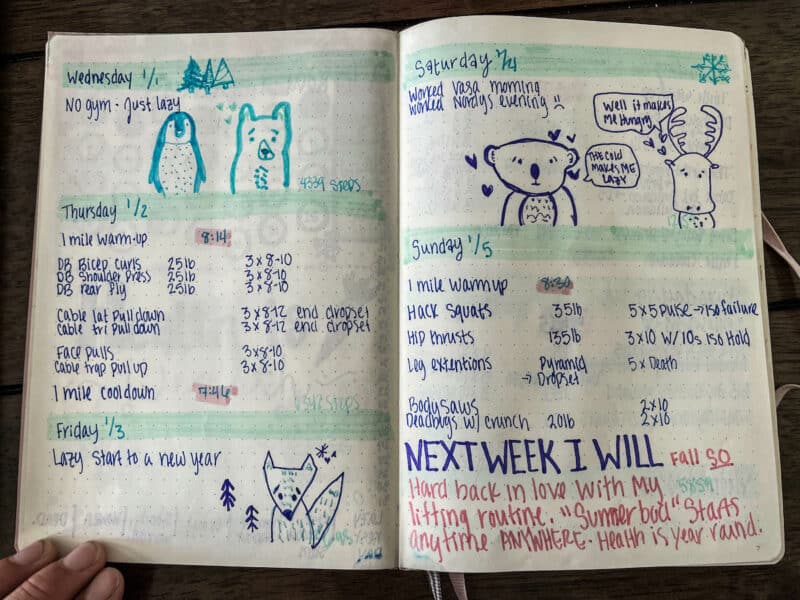 Wednesday 1/1
No gym - Just lazy
4339 Steps
Thursday 1/2
1 mile warm-up 8:14
DB Bicep Curls 25lb 3x8-10
DB Shoulder Press 25lb 3x8-10
DB rear fly 25lb 3x8-10
Cable lat pulldown 3x8-12 end dropset
Cable tri pulldown 3x8-12 end dropset
Face pulls 3x8-10
Cable trap pull up 3x8-10
1 mile cooldown 7:46
Steps
Friday 1/3
Lazy start to a new year
Saturday 1/4
Worked Vasa morning
Worked Nordys evening
Well it makes
Me Hungry
THE COLD
MAKES ME
LAZY
Sunday 1/5
1 mile warmup 8:30
Hack Squats 35lb 5x5 Pulse → Iso failure
Hip thrusts 135lb 3x10 w/ 10s Iso Hold
Leg extentions Pyramid 5x Death
→ Dropset
Body Saws 2x10
Deadbugs w/ crunch 20lb 2x10
NEXT WEEK I WILL Fall SO
Hard back in love with my 5859
lifting routine. "Summer bod" Starts
anytime ANYWHERE. Health is year round.